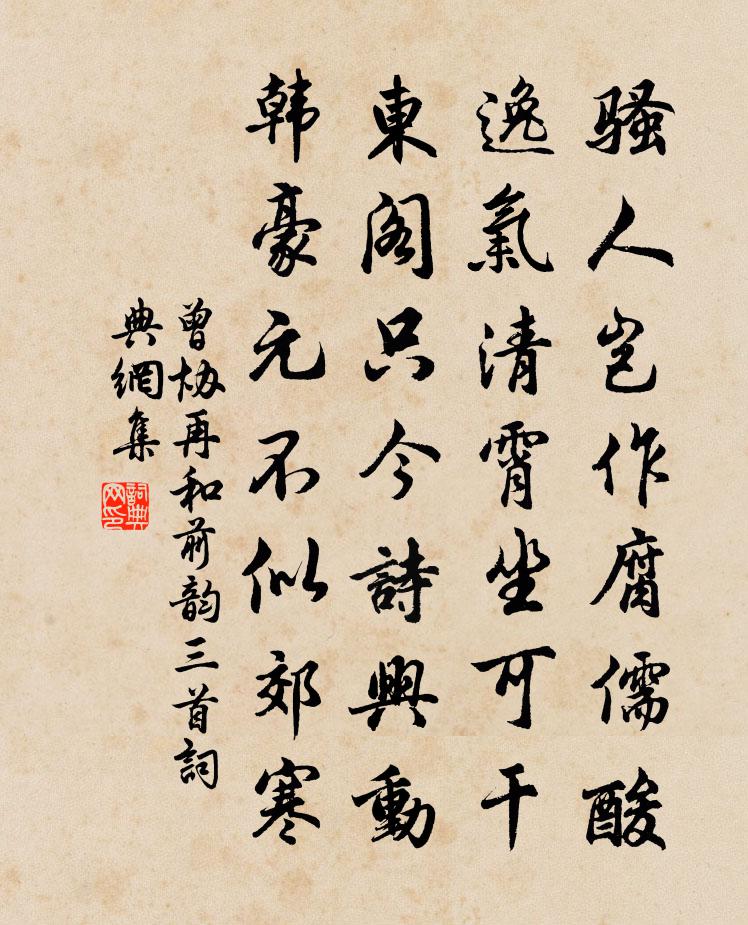 骚人岂作腐儒酸
逸氣清霄坐可干
東阁只今詩興動
韩豪元不似郊寒
曾协再和前韵三首詞
典網集
詞典
网印